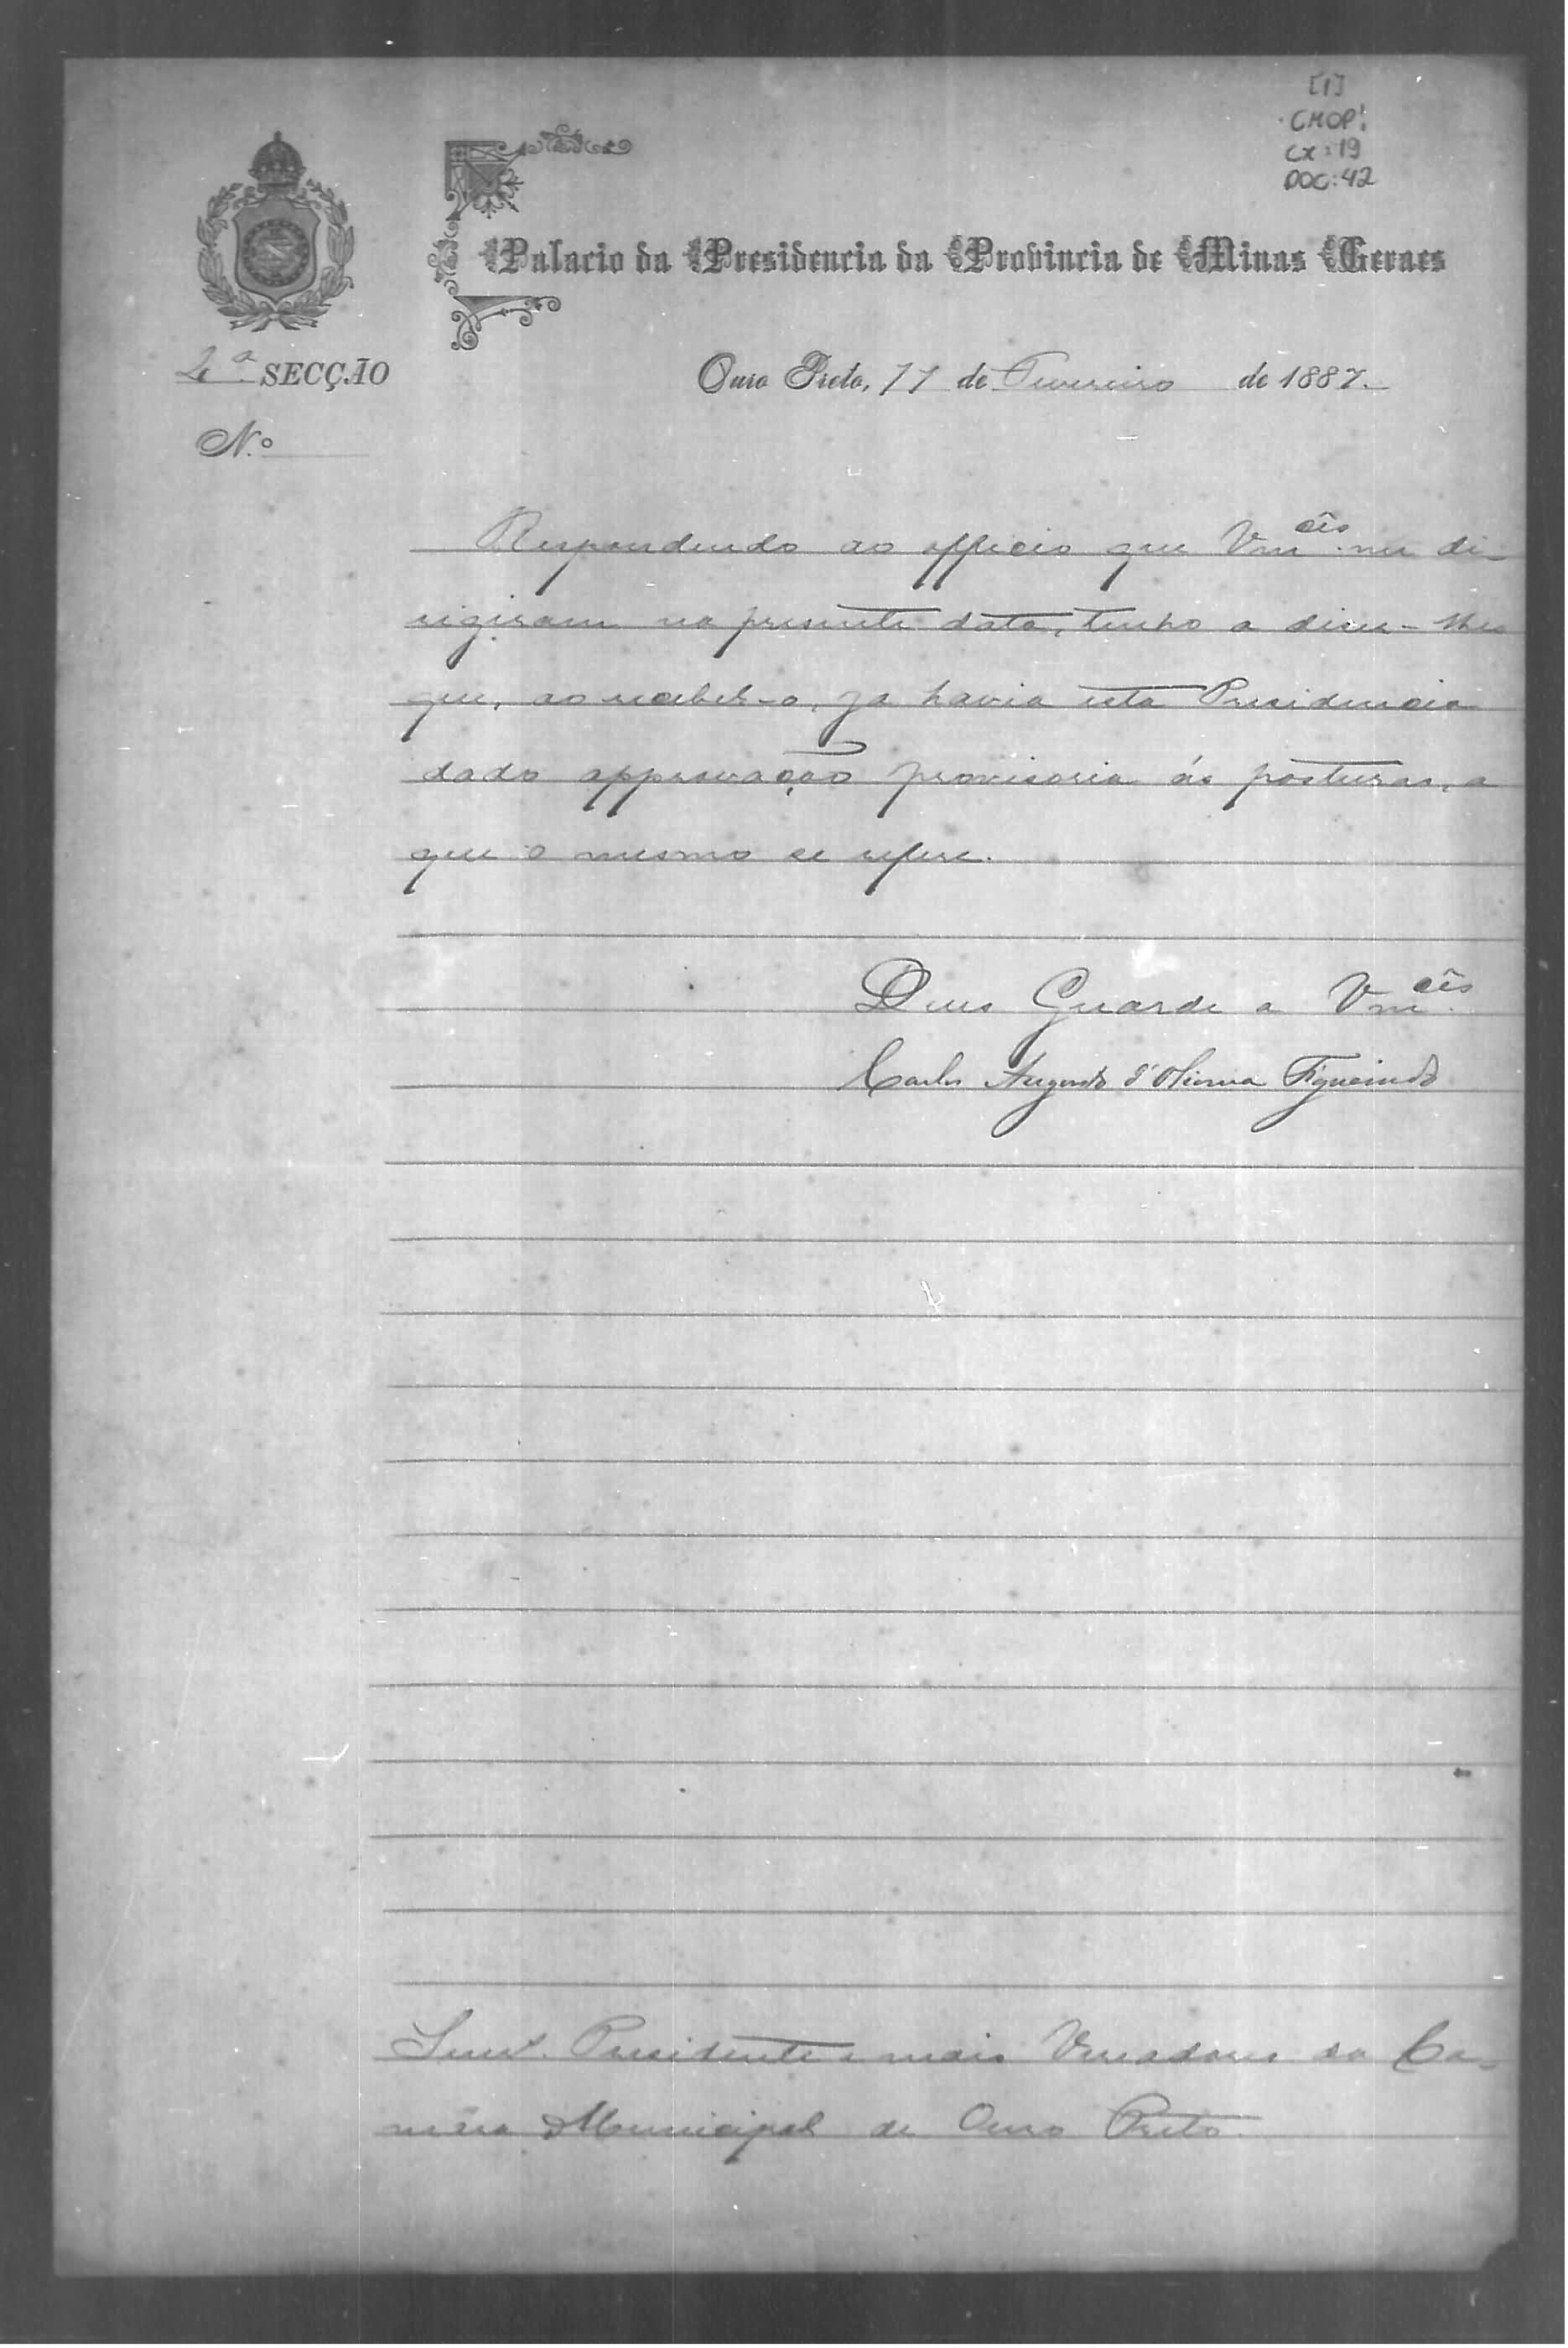 [1]
CMOP:
CX: 19
DOC: 42
Palacio da Presidencia da Provincia de Minas Geraes
2ª SECÇÃO
Ouro Preto, 11 de Fevereiro de 1887.
N.º
Respondendo ao officio que Vm.cês me di-
rigiram na presente data, tenho a dizer-lhes
que, ao recebel-o, ja havia esta Presidencia
dado approvação provisoria ás posturas, a
que o mesmo se refere.
Deus Guarde a Vm.cês
Carlos Augusto d'Oliveira Figueiredo
Presidente e mais Vereadores da Ca-
mara Municipal de Ouro Preto.